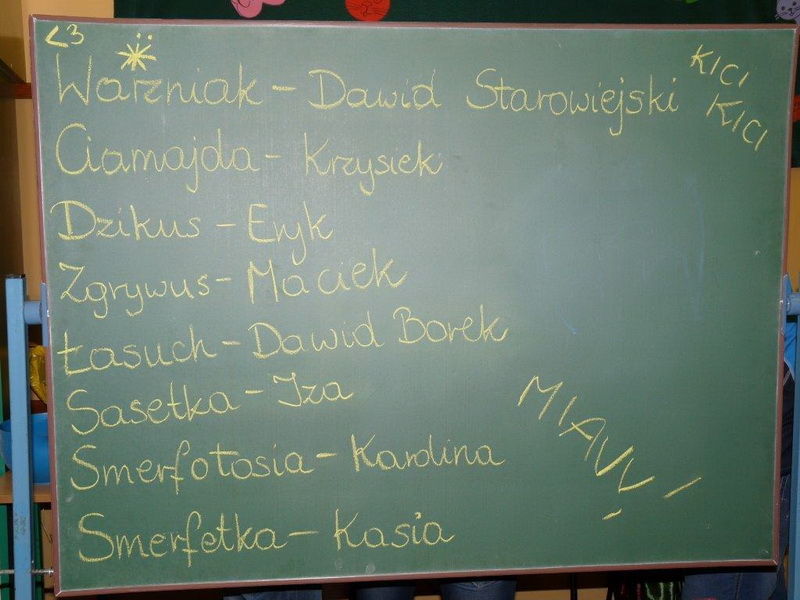 <3
Ważniak - Dawid Starowiejski
KICI
KICI
Ciamajda - Krzysiek
Dzikus - Eryk
Zgrywus - Maciek
Łasuch - Dawid Borek
Sasetka - Iza
MIAVV!
Smerfotosia - Karolina
Smerfetka - Kasia